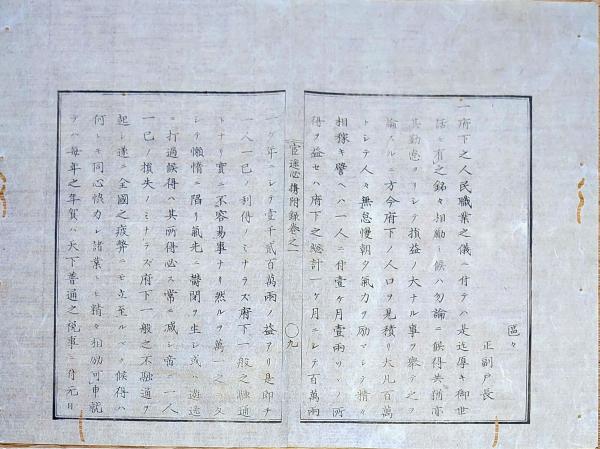 區々
正副戸長
一府下之人民職業之儀ニ付テハ是迄厚キ御世
話モ有之銘々相勵ミ候ハ勿論ニ候得共猶亦
其勤怠ヨリシテ損益ノ大ナル事ヲ衆テ之ヲ
論スルニ方今府下ノ人口ヲ見積リ大凡百萬
トシテ人々無怠慢朝夕氣力ヲ励マシテ精々
相稼キ譬ヘハ一人ニ付壹ケ月壹兩ツヽノ所
得ヲ益セハ府下之総計一ケ月ニシテ百萬兩
官途必携附録巻之一
○九
一ケ年ニシテ壹千貳百萬兩ノ益アリ是即チ
一人一己ノ利得ノミナラズ府下一般之融通
トナリ實ニ不容易事ナリ然ルヲ萬一之ニ反
シテ懶惰ニ陥リ氣先ニ鬱閉ヲ生シ或ハ遊迹
ニ打過候得ハ其所得必ス常ニ减シ啻ニ一人
一己ノ損失ノミナラズ府下一般之不融通ヲ
起シ遂ニ全國之疲弊ニモ立至ルマシク候得ハ
何レモ同心恊力シ諸業トモ精々相励可申就
テハ毎年之年賀ハ天下普通之悦事ニ付元日